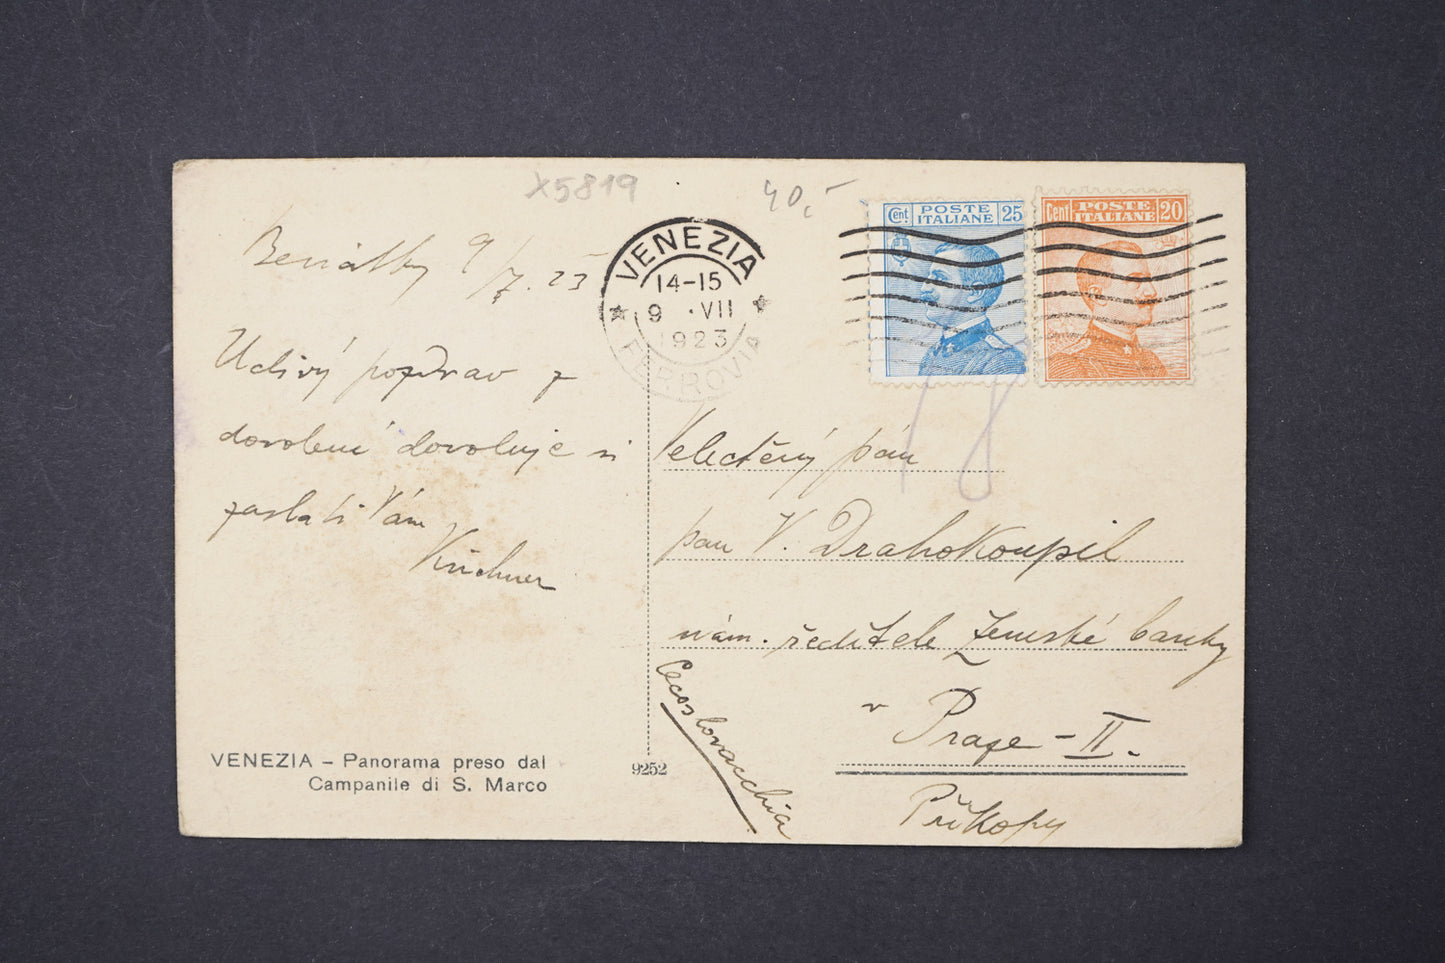 X5819
40,-
Cent. POSTE ITALIANE 25
Cent POSTE ITALIANE 20
VENEZIA
14-15
9 ·VII
1923
FERROVIA
9/7. 23
Uctivý pozdrav z
dovolené dovoluje si
zaslati Vám
Kirchner
Velectěný pán
pan V. Drahokoupil
nám. ředitele Zemské banky
v Praze -II-
Příkopy
Cecoslovacchia
VENEZIA – Panorama preso dal
Campanile di S. Marco
9252